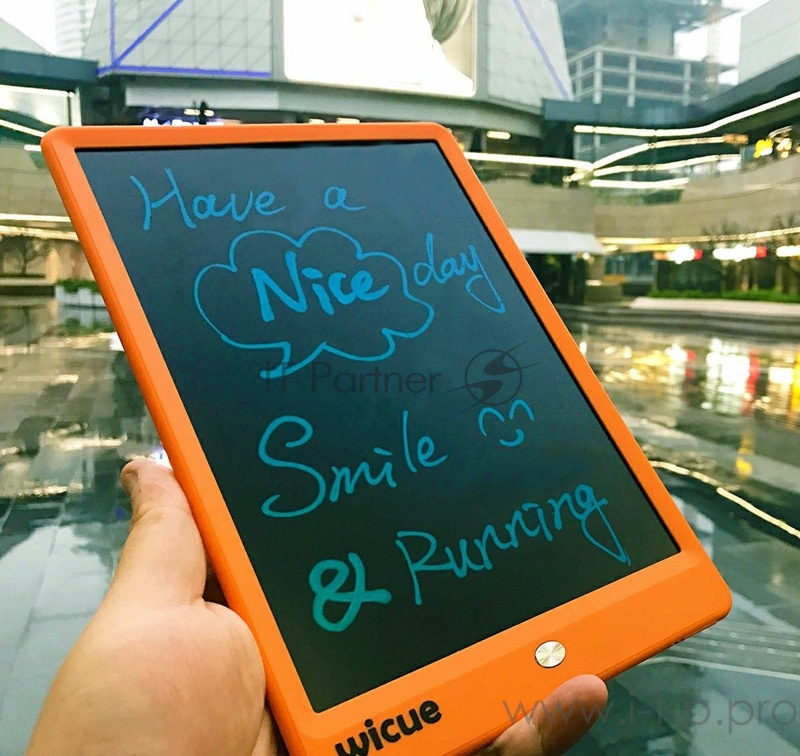 Have a
Nice day
IT Partner
Smile
& Running
wicue